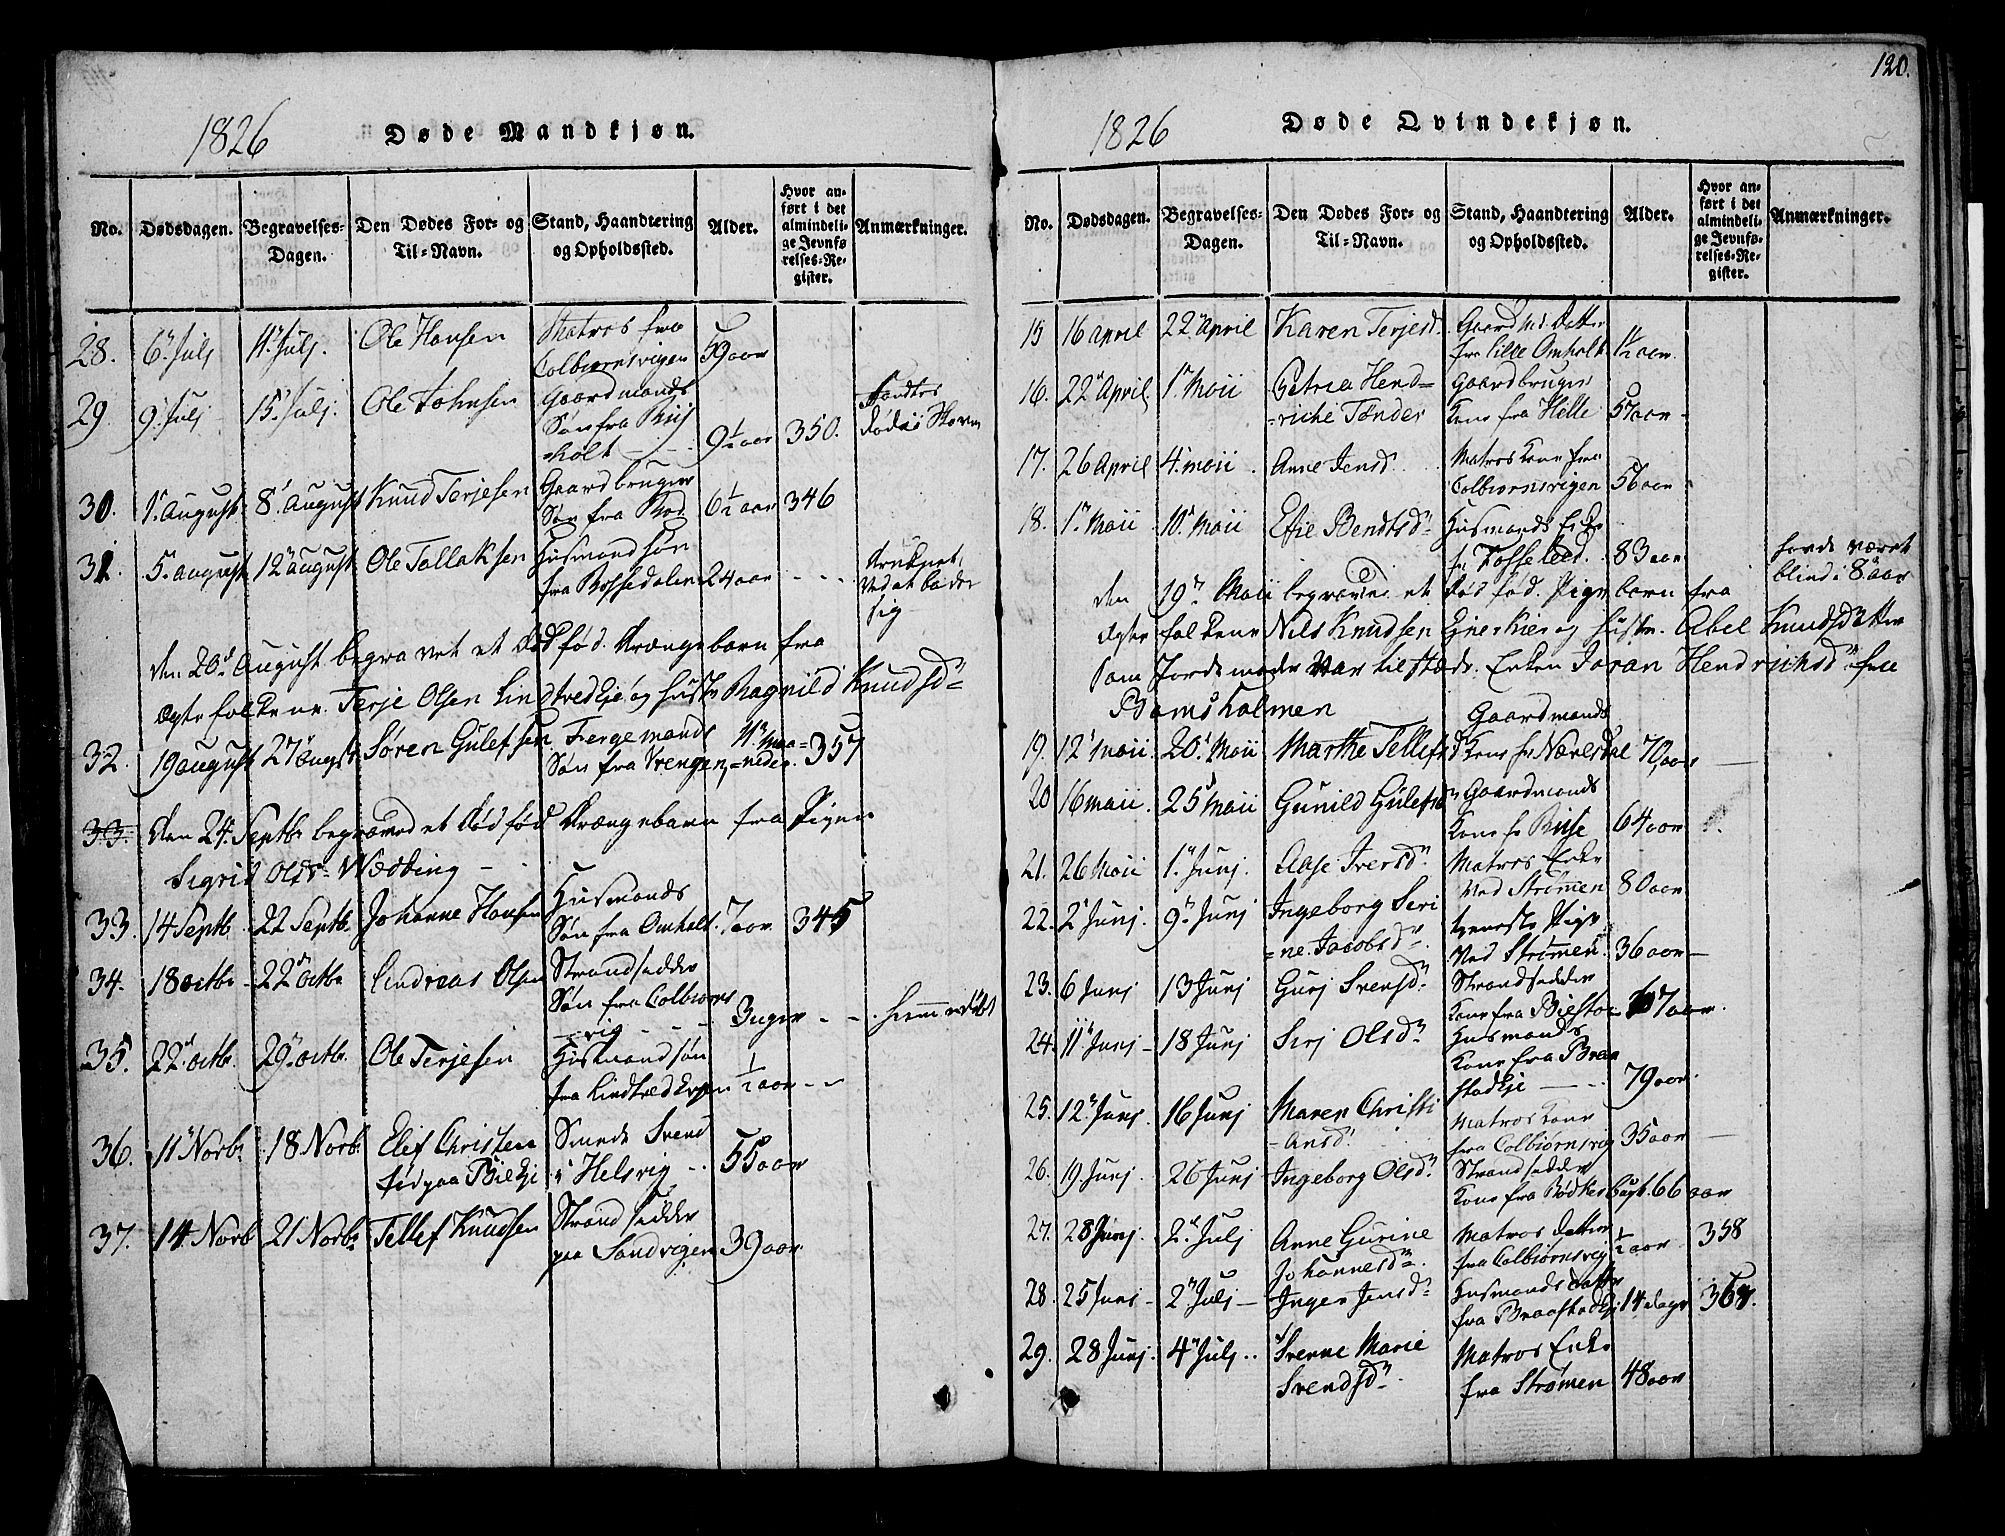 1826 Døde Mandkjøn.
No. Dødsdagen. Begravelses-Dagen. Den Dødes For- og Til-Navn. Stand, Haandtering og Opholdssted. Alder. Hvor anført i det almindelige Jevnførelses-Register. Anmærkninger.
28. 6 Julj 11 Julj. Ole Hansen Matros fra
Colbiørnsvigen 59 aar
29 9 Julj 15 Julj. Ole Johnsen Gaardmands
Søn fra Rijs
=holt 9½ aar 350. fandtes
død i
30. 1 August 8 August Knud Terjesen Gaardbruger
Søn fra 6½ aar 346
31. 5 august 12 august Ole Tallaksen Husmand søn
fra Bossedalen 24 aar - - - druknet
ved at bade
sig
den 20 August begravet et død fød. Drængebarn fra
Ægtefolkene Terje Olsen Lindtvedkje og hustr Ragnild Knudsd
32. 19 august 27 augst Søren Gulefsen Fergemands
Søn fra Vrengen 11 Maa=
=neder. 357
33. den 24 Septb begraved et død fød Drængebarn fra Pigen
Sigrid Olsd Wedding -
33. 14 Septb 22 Septb Johanne Hansen Husmands
Søn fra Omholt. 7 aar 345
34. 18 octb 22 octb Andreas Olsen Strandsidder
Søn fra Colbiørns
=vig - - - 3 uger - - hiemmedøbt
35. 22 octb. 29 octb. Ole Terjesen Husmandsøn
fra Lindtvedkjen ½ aar - -
36. 11 Novb. 18 Novb. Elef Christen
fød paa Biekj Smeds Svend
i Helsvig - - 55 aar
37. 14 Novb 21 Novb Tellef Knudsen Strandsidder
paa Sandvigen 39 aar
120.
1826 Døde Qvindekjøn.
No. Dødsdagen. Begravelses-Dagen. Den Dødes For- og Til-Navn. Stand, Haandtering og Opholdssted. Alder. Hvor anført i det almindelige Jevnførelses-Register. Anmærkninger.
15 16 april 22 april Karen Terjesd. Gaardmd. Datter
fra Lille Omholt 1½ aar
16. 22 April 1 Maii Petria Hend=
=riche Tønder Gaardbruger
Kone fra Helle 57 aar -
17. 26 April 4 maii Anne Jensd. Matros Kone fra
Colbiørnsvigen 56 aar
18. 1 Maii 10 Maii Efie Bendtsd Husmands Enke
fr Fosseleed. 83 aar havde været
blind i 8 aar
den 19 Maii begraven et død fød. Pigebarn fra
Ægtefolkene Nils Knudsen Eneskier og hustr. Abel Knudsdatter
som Jordemoder var tilstæde Enken Joran Hendrichsd fra
Bamsholmen
19. 12 maii 20 Maii Marthe Tellefsd Gaardmands
Kone fr Nærlsdal 70, aar
20 16 maii. 25 Maii Gunild Gulefsd Gaardmands
Kone fr Riise 64 aar
21. 26 Maii 1 Junj. Aase Iversd. Matros Enke
ved Strømen 80 aar
22. 2 Junj 9 Junj Ingeborg Seri
=ne Jacobsd tieneste Pige
ved Strømen 36 aar -
23. 6 Junj 13 Junj Gurj Svensd Strandsidder
Kone fra 67 aar.
24. 11 Junj - 18 Junj Sirj Olsd Husmands
Kone fra Braa
stadkje - - - 79 aar
25. 12 Junj 16 Junj Maren Christi
=ansd. Matros Kone
fra Colbiørnsvig 35 aar
26. 19 Junj 26 Junj Ingeborg Olsd Strandsidder
Kone fra Rødkes Bugt. 66 aar
27. 28 Junj. 2 Julj Anne Gurine
Johannesd. Matros Datter
fra Colbiørnsvig ½ aar 358
28. 25 Junj - 2 Julj - Inger Jensd Husmands datter
fra Braastadkj 14 dage 368.
29. 28 Junj. 4 Julj.. Svenne Marie
Svendsd. Matros Enke
fra Strømen 48 aar